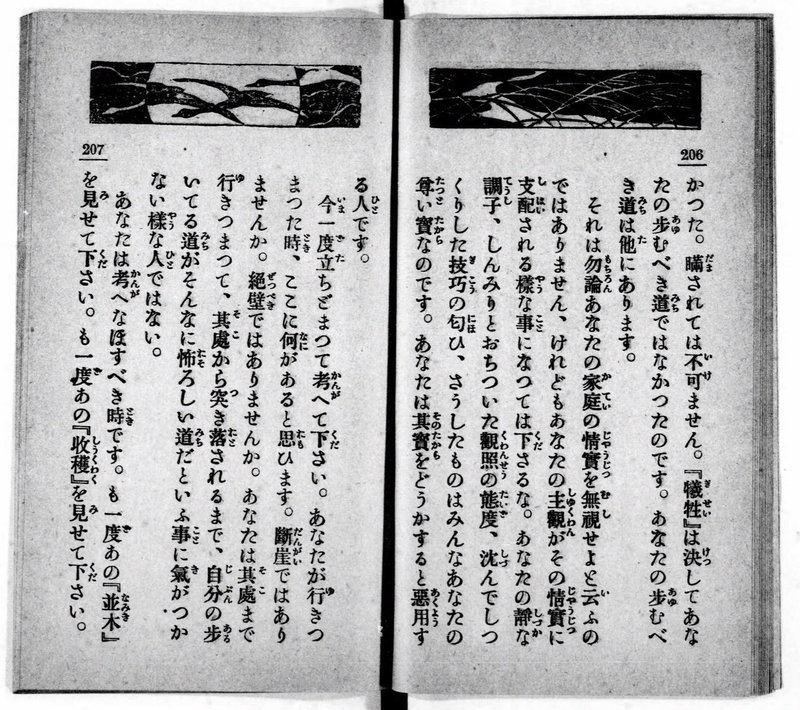 206
かつた。瞞されては不可ません。『犧牲』は決してあな
たの步むべき道ではなかつたのです。あなたの步むべ
き道は他にあります。
それは勿論あなたの家庭の情實を無視せよと云ふの
ではありません、けれどもあなたの主觀がその情實に
支配される樣な事になつては下さるな。あなたの靜な
調子、しんみりとおちついた觀照の態度、沈んでしつ
くりした技巧の匂ひ、さうしたものはみんなあなたの
尊い寶なのです。あなたは其寶をどうかすると惡用す
207
る人です。
今一度立ちどまつて考へて下さい。あなたが行きつ
まつた時、ここに何があると思ひます。斷崖ではあり
ませんか。絕壁ではありませんか。あなたは其處まで
行きつまつて、其處から突き落されるまで、自分の步
いてる道がそんなに怖ろしい道だといふ事に氣がつか
ない樣な人ではない。
あなたは考へなほすべき時です。も一度あの『並木』
を見せて下さい。も一度あの『收穫』を見せて下さい。